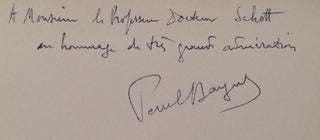 A Monsieur le Professeur Docteur Schott
en hommage de très grande admiration